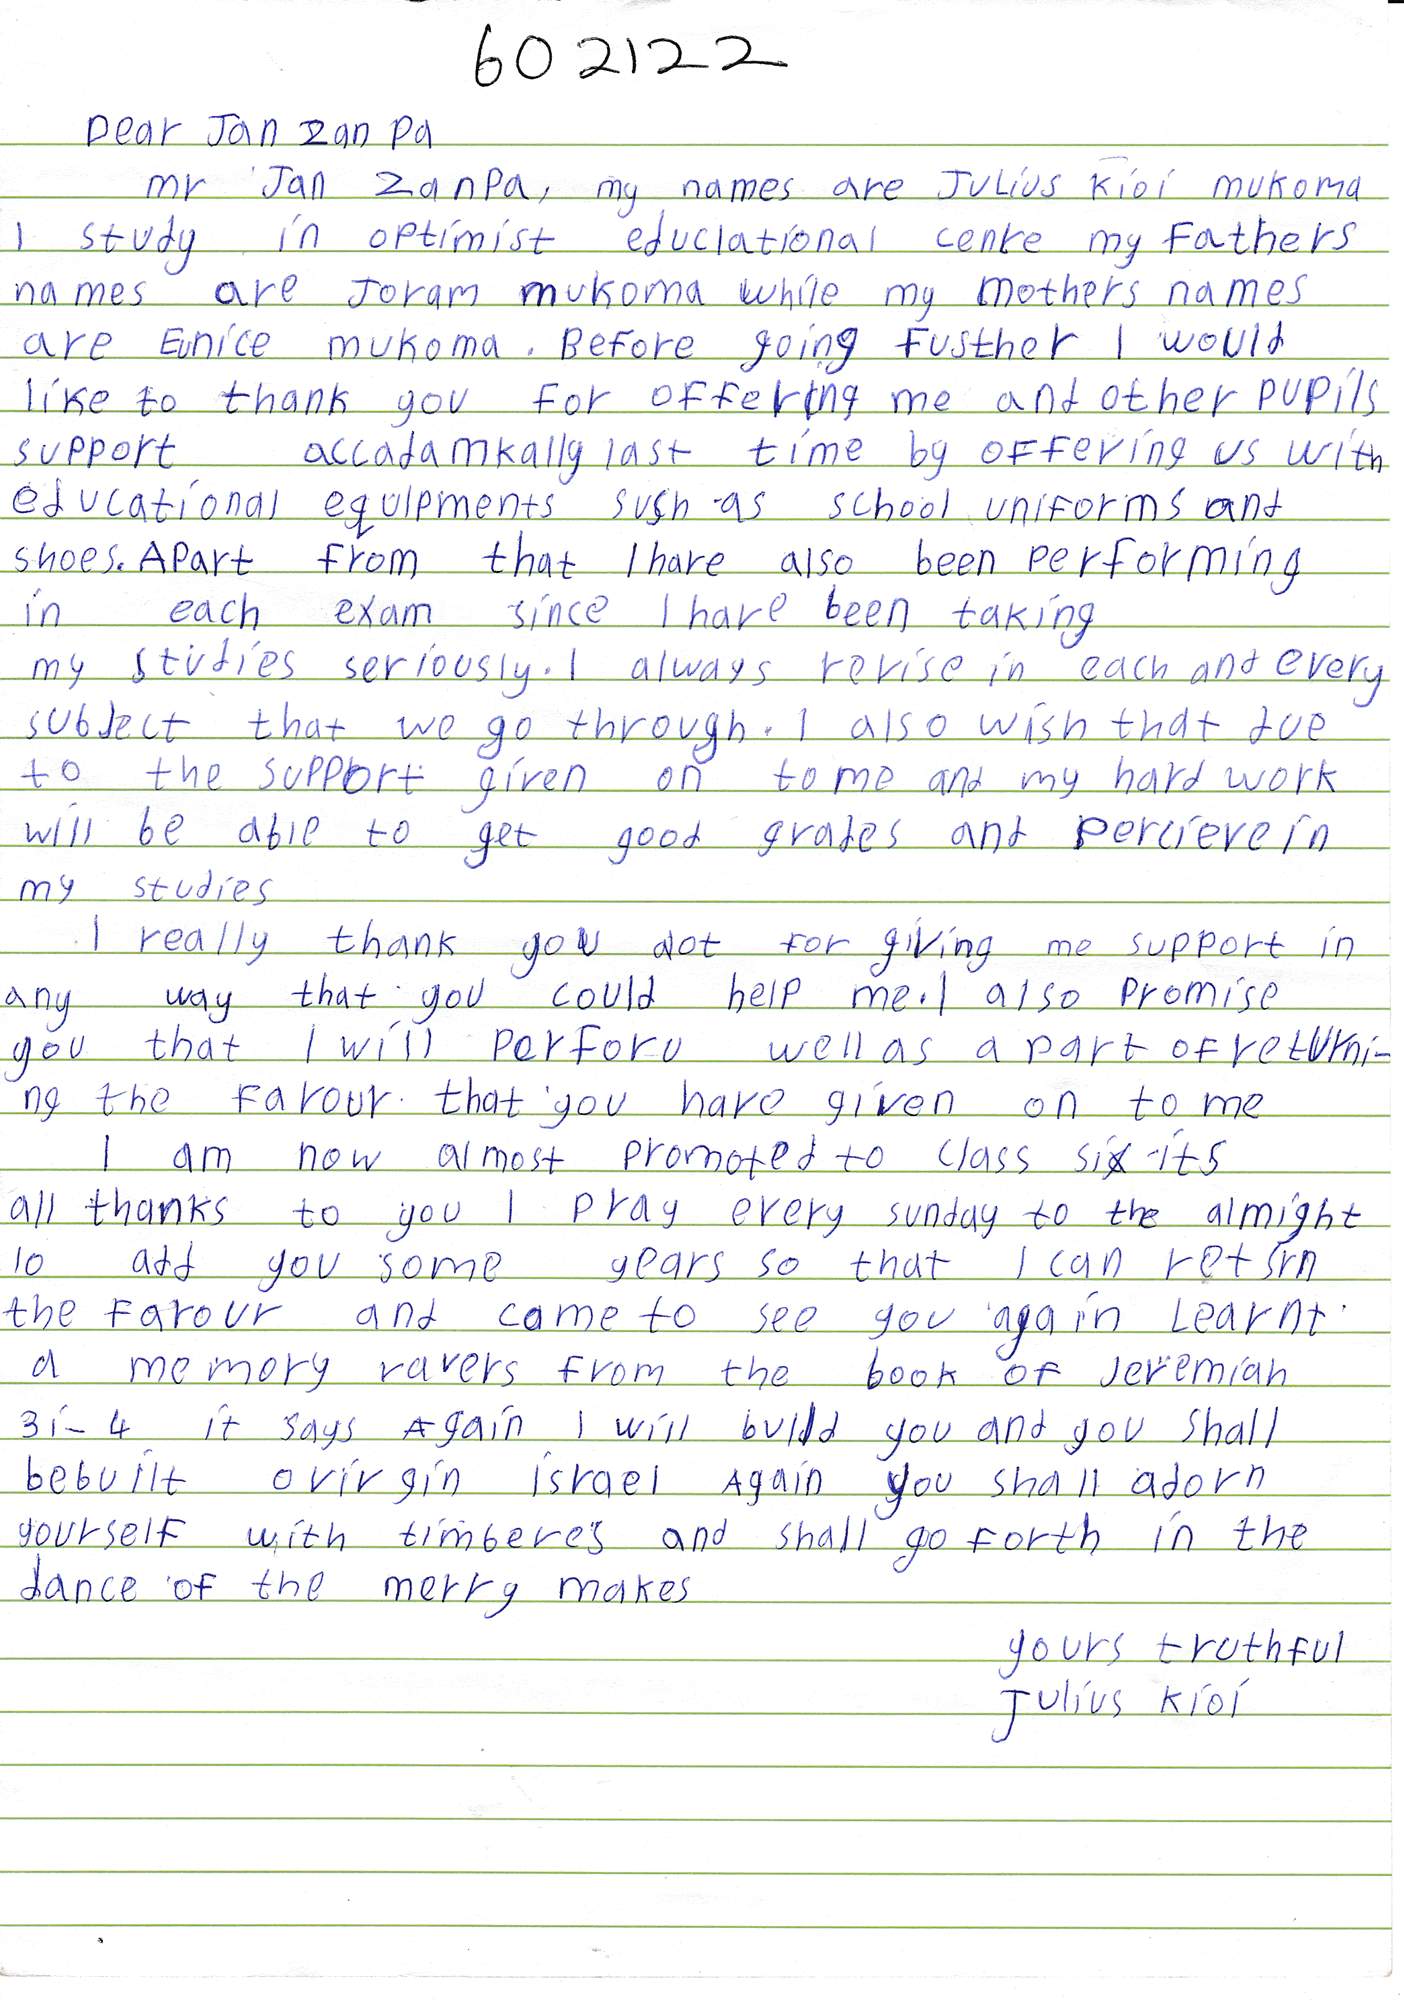 602122
Dear Jan Zan Pa
mr Jan ZanPa, my names are Julius Kioi mukoma
I study in optimist educlational cenre my Fathers
names are Joram mukoma while my mothers names
are Eunice mukoma. Before going Fusther I would
like to thank you For offering me and other pupils
support accadamkally last time by offering us with
educational equipments such as school uniforms and
shoes. Apart From that I have also been performing
in each exam since I have been taking
my studies seriously. I always revise in each and every
subject that we go through. I also wish that due
to the support given on to me and my hard work
will be able to get good grades and percieve in
my studies
I really thank you alot for giving me support in
any way that you could help me. I also promise
you that I will perforu well as a part of returni-
ng the Favour that you have given on to me
I am now almost promoted to class six its
all thanks to you I pray every sunday to the almight
to add you some years so that I can retsrn
the Favour and came to see you again Learnt
a memory ravers From the book of Jeremiah
3i-4 it says Again I will build you and you shall
be built o virgin israel Again you shall adorn
yourself with timberes and shall go forth in the
dance of the merry makes
yours truthful
Julius Kioi